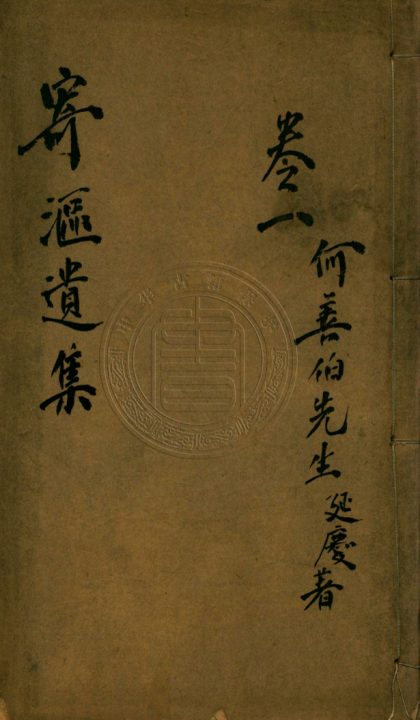 卷一
何善伯先生延慶著
寄漚遺集